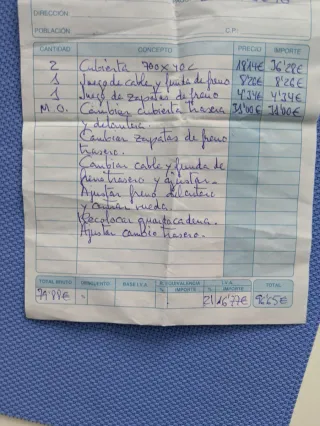 DIRECCIÓN
POBLACIÓN C.P.:
CANTIDAD CONCEPTO PRECIO IMPORTE
2 Cubierta 700x40c 18'14€ 36'28€
1 Juego de cable y funda de freno 8'26€ 8'26€
1 Juego de zapatas de freno 4'34€ 4'34€
M.O. Cambiar cubierta trasera 31'00€ 31'00€
y delantera.
Cambiar zapatas de freno
trasero.
Cambiar cable y funda de
freno trasero y ajustar.
Ajustar freno delantero
y rueda.
Recolocar guardacadena.
Ajustar cambio trasero.
TOTAL BRUTO DESCUENTO BASE I.V.A. R. EQUIVALENCIA I.V.A. TOTAL
% IMPORTE % IMPORTE
79'88€ 21 16'77€ 96'65€